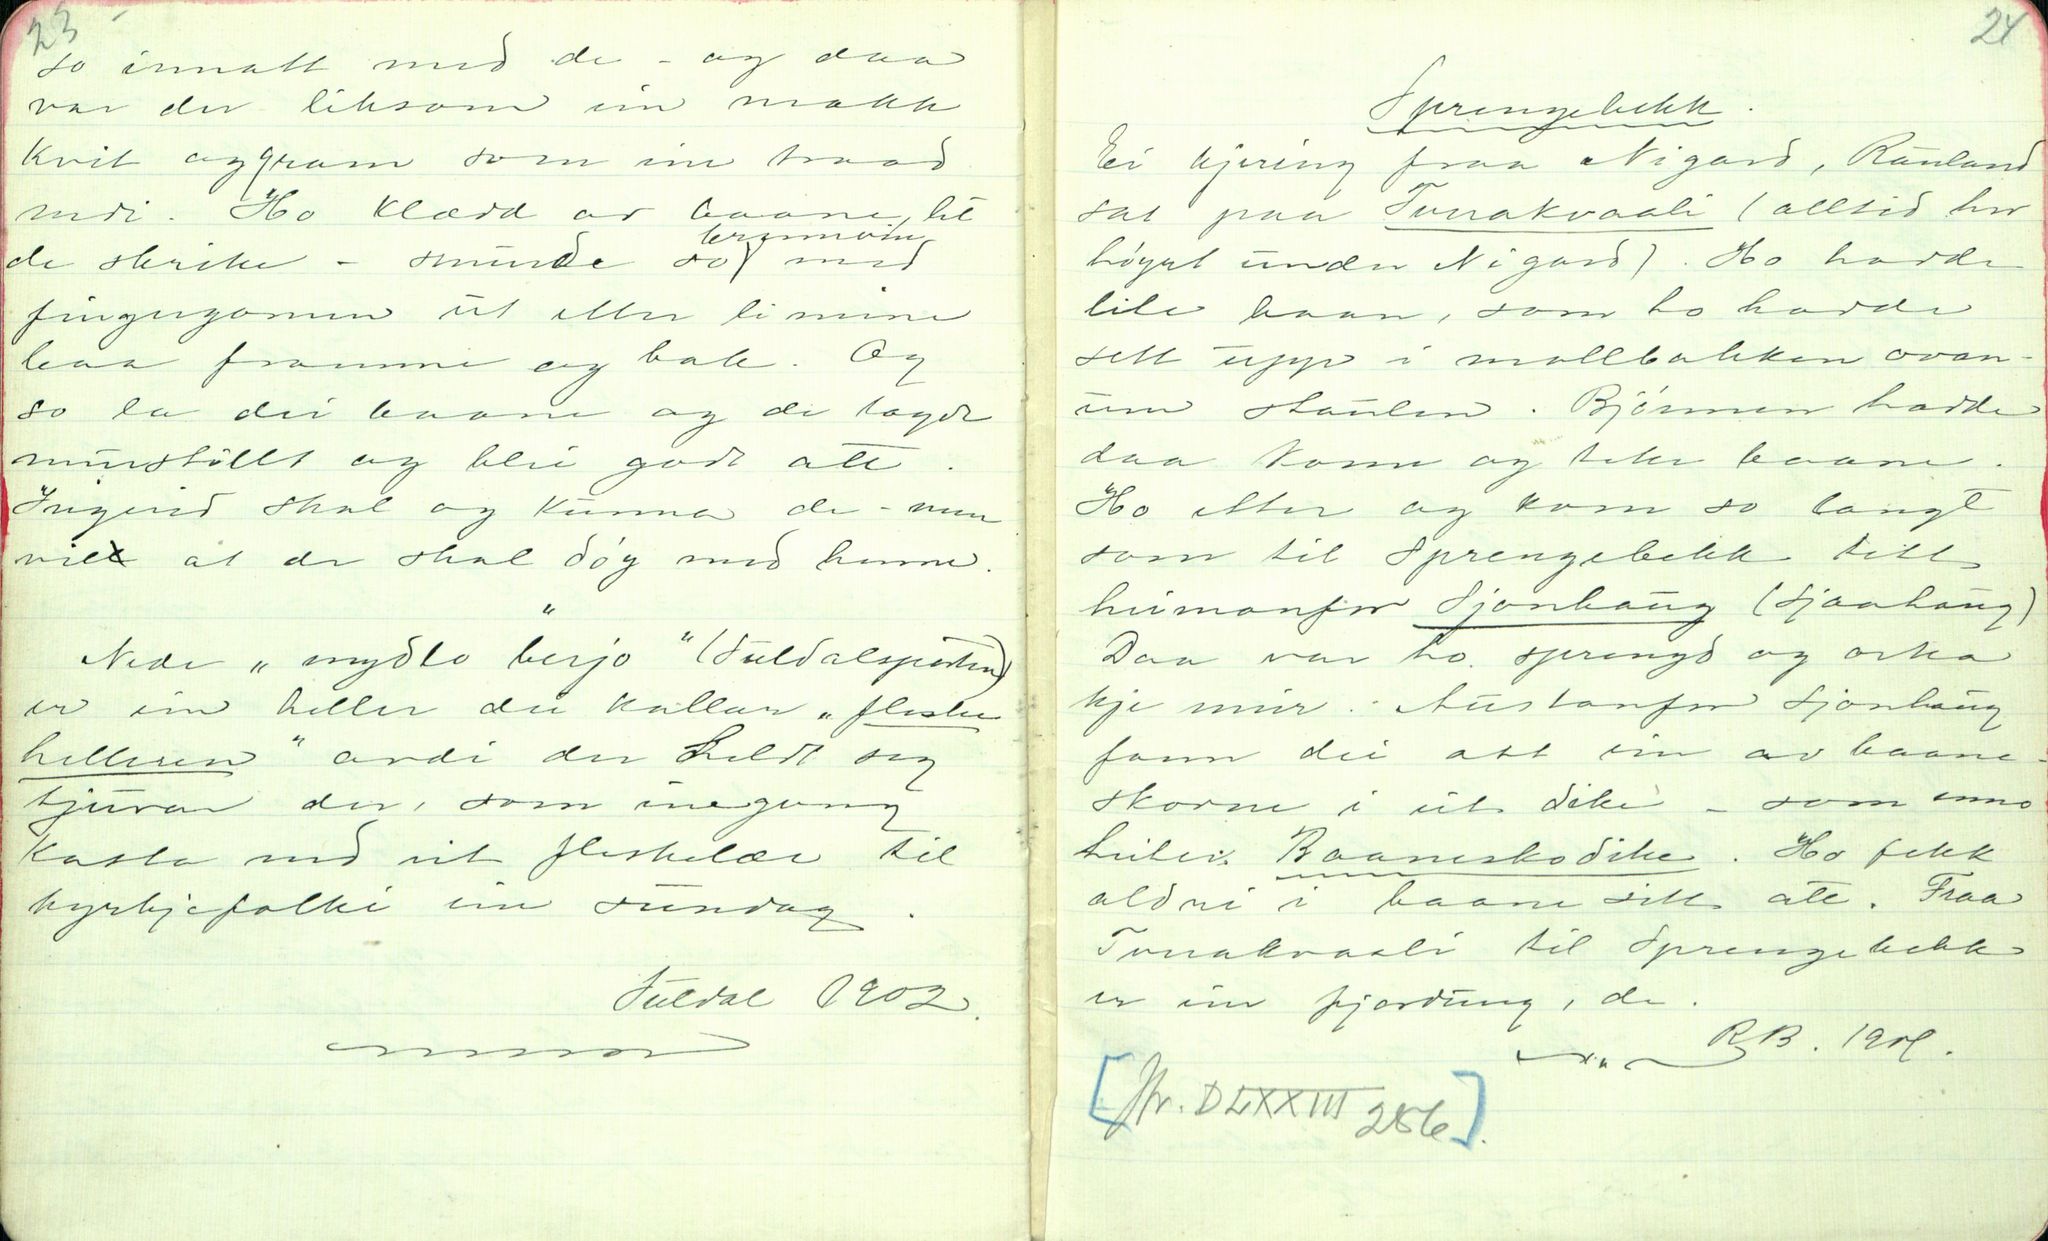 23
so innatt med de - og daa
var der liksom ein makk
kvit og gran som ein traad
nedi. Ho klædd av baane, lét
de skrike - smúrde so brennvin med
fingrgomen út etter limine
baa framme og bak. Og
so la dei baane og de tagde
múrstillt og blei godt atte.
Ingerid skal og kúnna de - men
vil at de skal døy med henne.
"
Nede "mydlo berjo" (Súldalsporten)
er ein heller dei kallar "fleske
helleren" avdi der heldt seg
tjúvar der, som eingong
kasta ned eit fleskelær til
kyrkjefolki ein súndag.
Súldal 1902.
24
Sprengebekk.
Ei kjering fraa Nigard, Raúland
sat paa Tvnakvaali (alltid hø
høyrt únder Nigard). Ho hadde
lite baan, som ho hadde
sett úpp i mollbakken ovan-
úm staúlen. Bjørnen hadde
daa kome og teke baane.
Ho etter og kom so langt
som til Sprengebekk tett
heimanfor Sjonhaúg (Sjaahaúg)
Daa var ho sprengd og orka
kje meir. Aústanfor Sjonhaúg
fann dei att ein av baane-
skorne i eit dike - som enno
heiter Baaneskodike. Ho fekk
aldri i baane sitt atte. Fraa
Tvnakvaali til Sprengebekk
er ein fjordúng, de.
R.B. 1901.
[Jfr. DLXXIII 256].